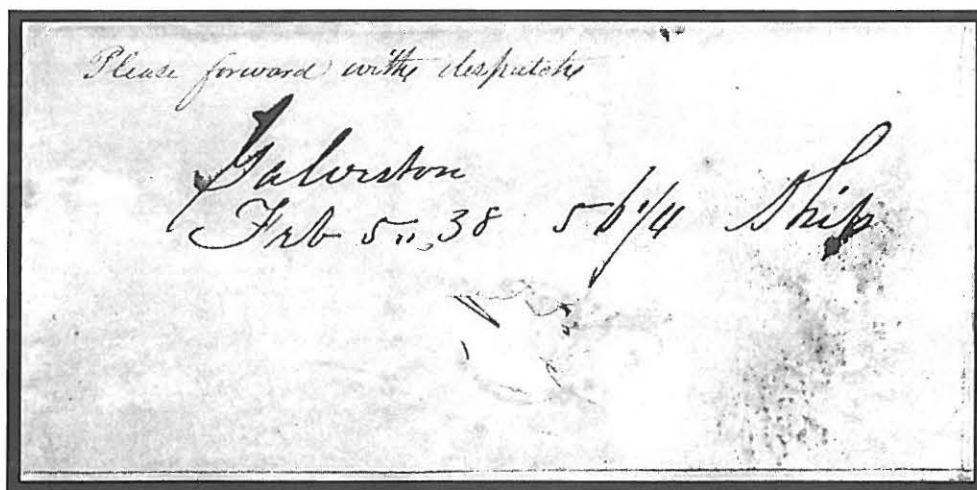 Please forward with despatch
Galveston
Feb 5 ,, 38 56 1/4 Ship